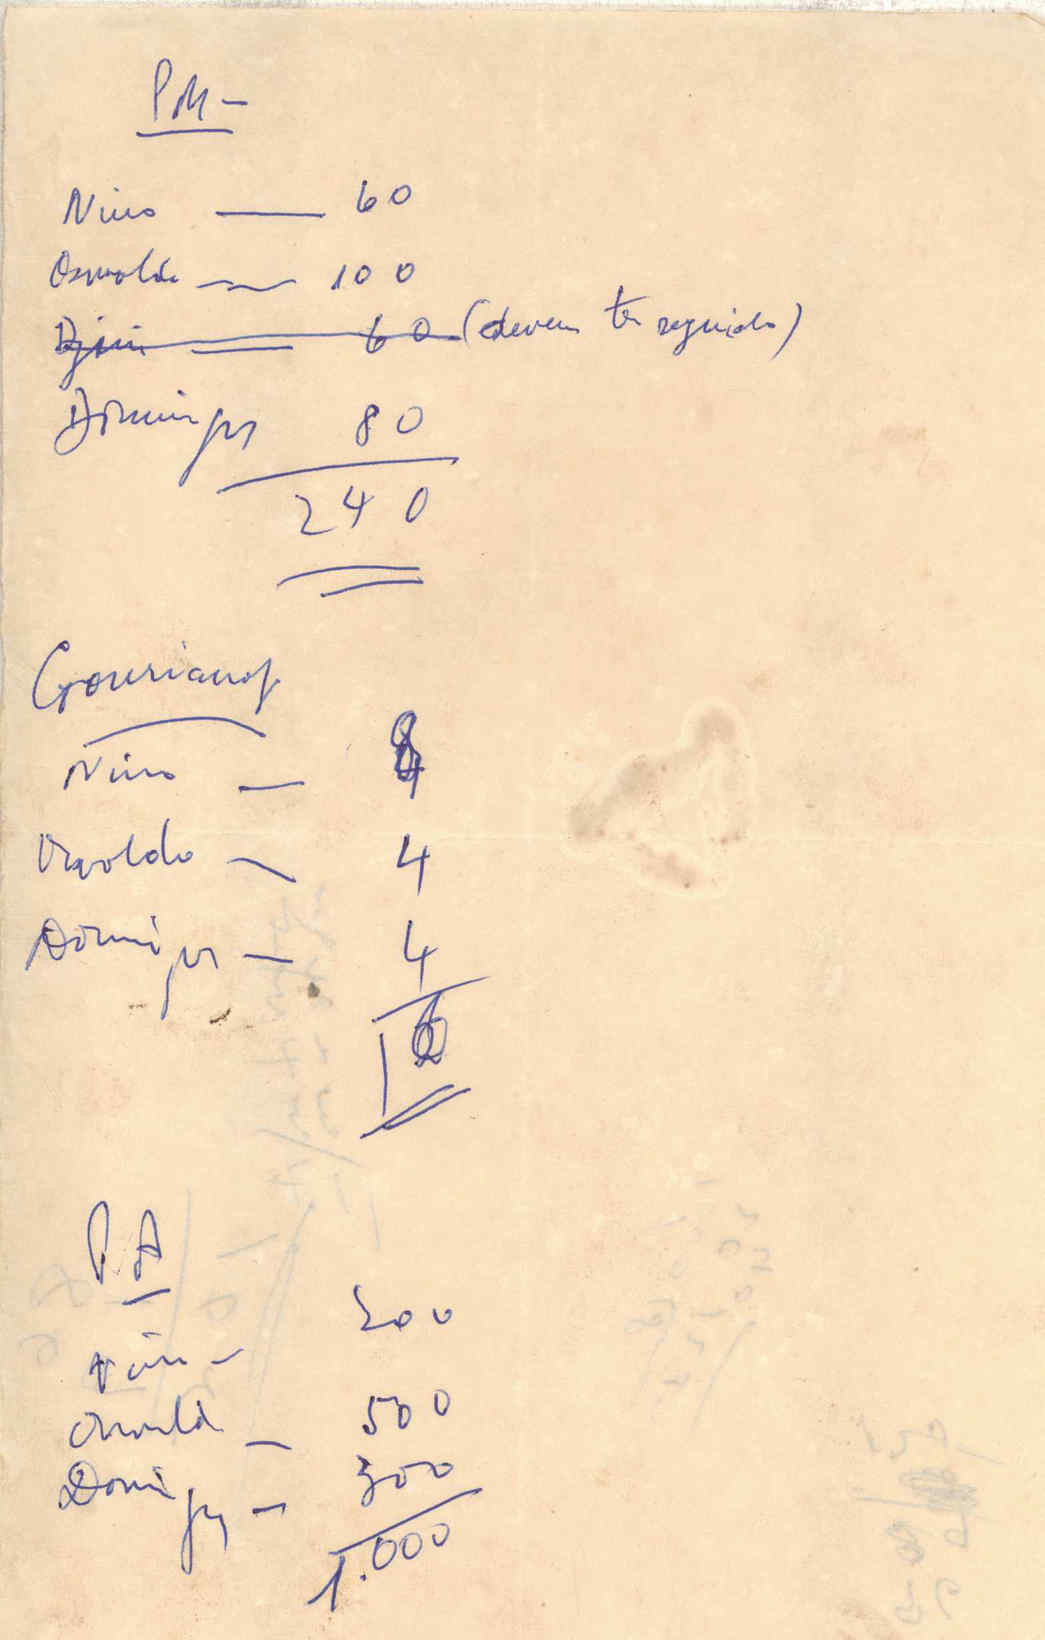 PM -
Nino — 60
Osvaldo — 100
Djini — 60 (devem ter seguido)
Domingos 80
240
Nino — 8
Osvaldo — 4
Domingos — 4
16
P.A
200
Nino -
Osvaldo — 500
Domingos — 300
1.000